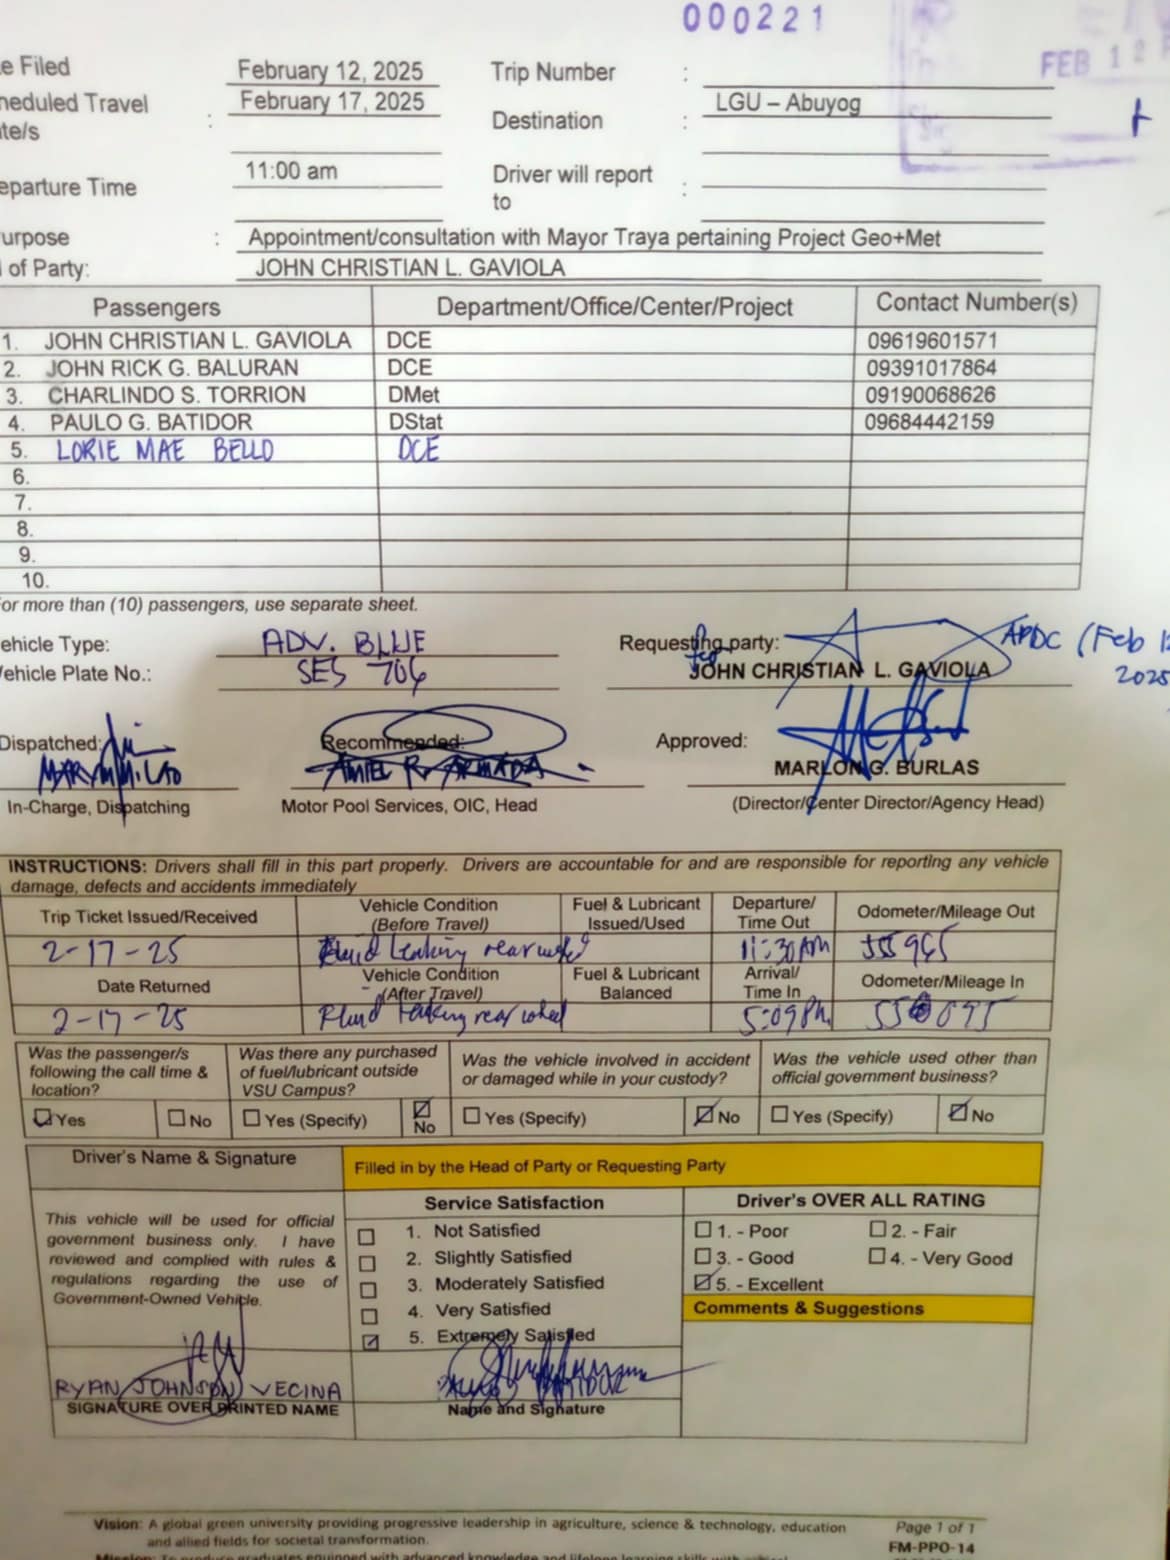 000221
e Filed February 12, 2025 Trip Number :
FEB 12
heduled Travel : February 17, 2025 Destination : LGU – Abuyog
te/s
eparture Time 11:00 am Driver will report :
to
urpose : Appointment/consultation with Mayor Traya pertaining Project Geo+Met
of Party: JOHN CHRISTIAN L. GAVIOLA
Passengers Department/Office/Center/Project Contact Number(s)
1. JOHN CHRISTIAN L. GAVIOLA DCE 09619601571
2. JOHN RICK G. BALURAN DCE 09391017864
3. CHARLINDO S. TORRION DMet 09190068626
4. PAULO G. BATIDOR DStat 09684442159
5. LORIE MAE BELLO DCE
6.
7.
8.
9.
10.
or more than (10) passengers, use separate sheet.
ehicle Type: ADV. BLUE Requesting party: APDC (Feb 12
ehicle Plate No.: SES 706 for JOHN CHRISTIAN L. GAVIOLA 2025
Dispatched: Recommended: Approved:
AMIEL R. ARMADA MARLON G. BURLAS
In-Charge, Dispatching Motor Pool Services, OIC, Head (Director/Center Director/Agency Head)
INSTRUCTIONS: Drivers shall fill in this part properly. Drivers are accountable for and are responsible for reporting any vehicle
damage, defects and accidents immediately
Trip Ticket Issued/Received Vehicle Condition Fuel & Lubricant Departure/ Odometer/Mileage Out
(Before Travel) Issued/Used Time Out
2-17-25 Fluid leaking rear wheel 11:30AM
Date Returned Vehicle Condition Fuel & Lubricant Arrival/ Odometer/Mileage In
(After Travel) Balanced Time In
2-17-25 Fluid leaking rear wheel 5:09PM
Was the passenger/s Was there any purchased Was the vehicle involved in accident Was the vehicle used other than
following the call time & of fuel/lubricant outside or damaged while in your custody? official government business?
location? VSU Campus?
Yes No Yes (Specify) No Yes (Specify) No Yes (Specify) No
Driver's Name & Signature Filled in by the Head of Party or Requesting Party
Service Satisfaction Driver's OVER ALL RATING
This vehicle will be used for official
government business only. I have
reviewed and complied with rules &
regulations regarding the use of
Government-Owned Vehicle.
1. Not Satisfied
2. Slightly Satisfied
3. Moderately Satisfied
4. Very Satisfied
5. Extremely Satisfied
1. - Poor 2. - Fair
3. - Good 4. - Very Good
5. - Excellent
Comments & Suggestions
RYAN JOHNSON VECINA BATIDOR
SIGNATURE OVER PRINTED NAME Name and Signature
Vision: A global green university providing progressive leadership in agriculture, science & technology, education
and allied fields for societal transformation.
Page 1 of 1
FM-PPO-14
Mission: To produce graduates equipped with advanced knowledge and lifelong learning skills with